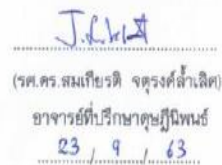 (รศ.ดร.สมเกียรติ จตุรงค์ล้ำเลิศ)
อาจารย์ที่ปรึกษาดุษฎีนิพนธ์
23 / 9 / 63